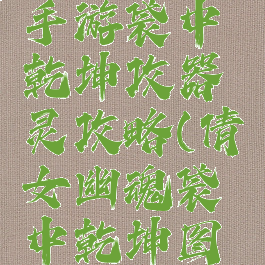 手游袋中
乾坤攻器
灵攻略(倩
女幽魂袋
中乾坤图